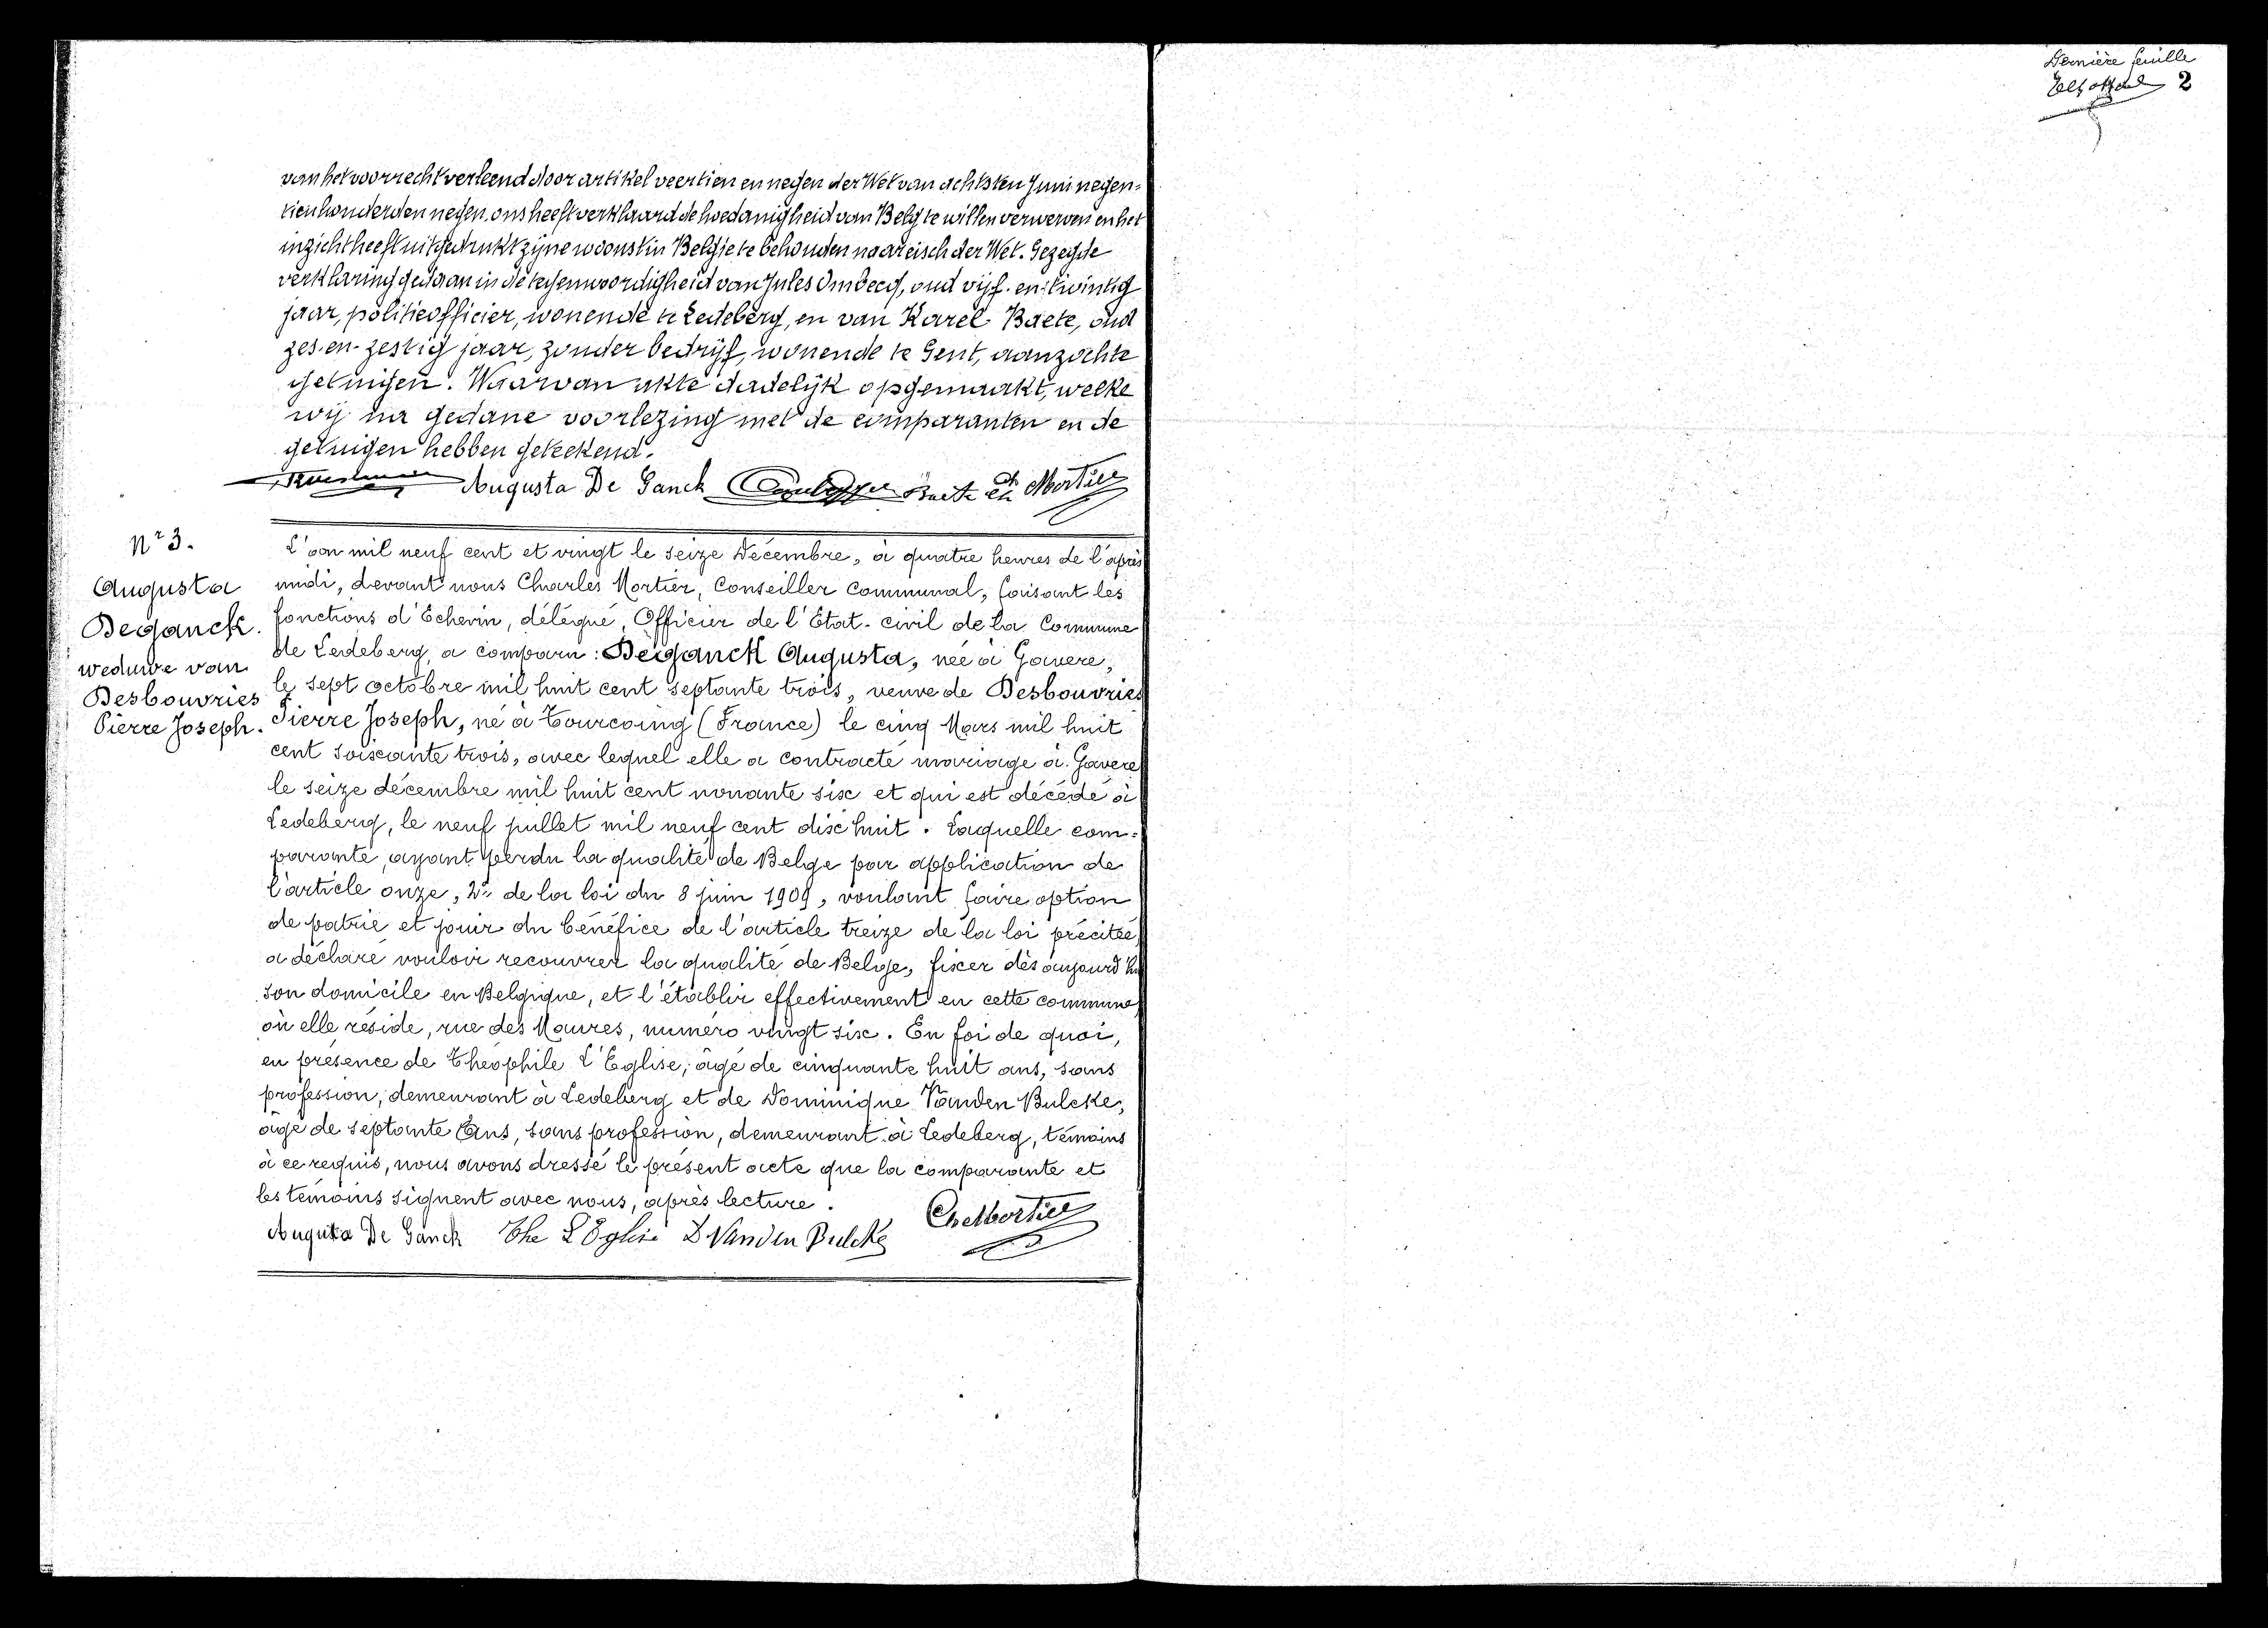 van het voorrecht verleend door artikel veertien en negen der Wet van achtsten Juni negen-
tienhonderden negen, ons heeft verklaard de hoedanigheid van Belg te willen verwerven en het
inzicht heeft uitgedrukt zijne woonst in België te behouden naar eisch der Wet. Gezegde
verklaring gedaan in de tegenwoordigheid van Jules Ombecq, oud vijf-en-twintig
jaar, politieofficier, wonende te Ledeberg, en van Karel Baete, oud
zes-en-zestig jaar, zonder bedrijf, wonende te Gent, aanzochte
getuigen. Waarvan akte dadelijk opgemaakt, welke
wij na gedane voorlezing met de comparanten en de
getuigen hebben geteekend.
Augusta De Ganck Baete Ch Mortier
Nr 3.
Augusta
Deganck.
weduwe van
Desbouvries
Pierre Joseph.
L'an mil neuf cent et vingt le seize Décembre, à quatre heures de l'après
midi, devant nous Charles Mortier, Conseiller Communal, faisant les
fonctions d'Echevin, délégué, Officier de l'Etat-civil de la Commune
de Ledeberg, a comparu : Deganck Augusta, née à Gavere,
le sept octobre mil huit cent septante trois, veuve de Desbouvries
Pierre Joseph, né à Tourcoing (France) le cinq Mars mil huit
cent soixante trois, avec lequel elle a contracté mariage à Gavere
le seize décembre mil huit cent nonante six et qui est décédé à
Ledeberg, le neuf juillet mil neuf cent dix huit. Laquelle com-
parante, ayant perdu la qualité de Belge par application de
l'article onze, 2° de la loi du 8 juin 1909, voulant faire option
de patrie et jouir du bénéfice de l'article treize de la loi précitée,
a déclaré vouloir recouvrer la qualité de Belge, fixer dès aujourd'hui
son domicile en Belgique, et l'établir effectivement en cette commune,
où elle réside, rue des Maures, numéro vingt six. En foi de quoi,
en présence de Théophile L'Eglise, âgé de cinquante huit ans, sans
profession, demeurant à Ledeberg et de Dominique Vanden Bulcke,
âgé de septante Ans, sans profession, demeurant à Ledeberg, témoins
à ce requis, nous avons dressé le présent acte que la comparante et
les témoins signent avec nous, après lecture.
Augusta De Ganck The L'Eglise D Vanden Bulcke Ch Mortier
Dernière feuille
2